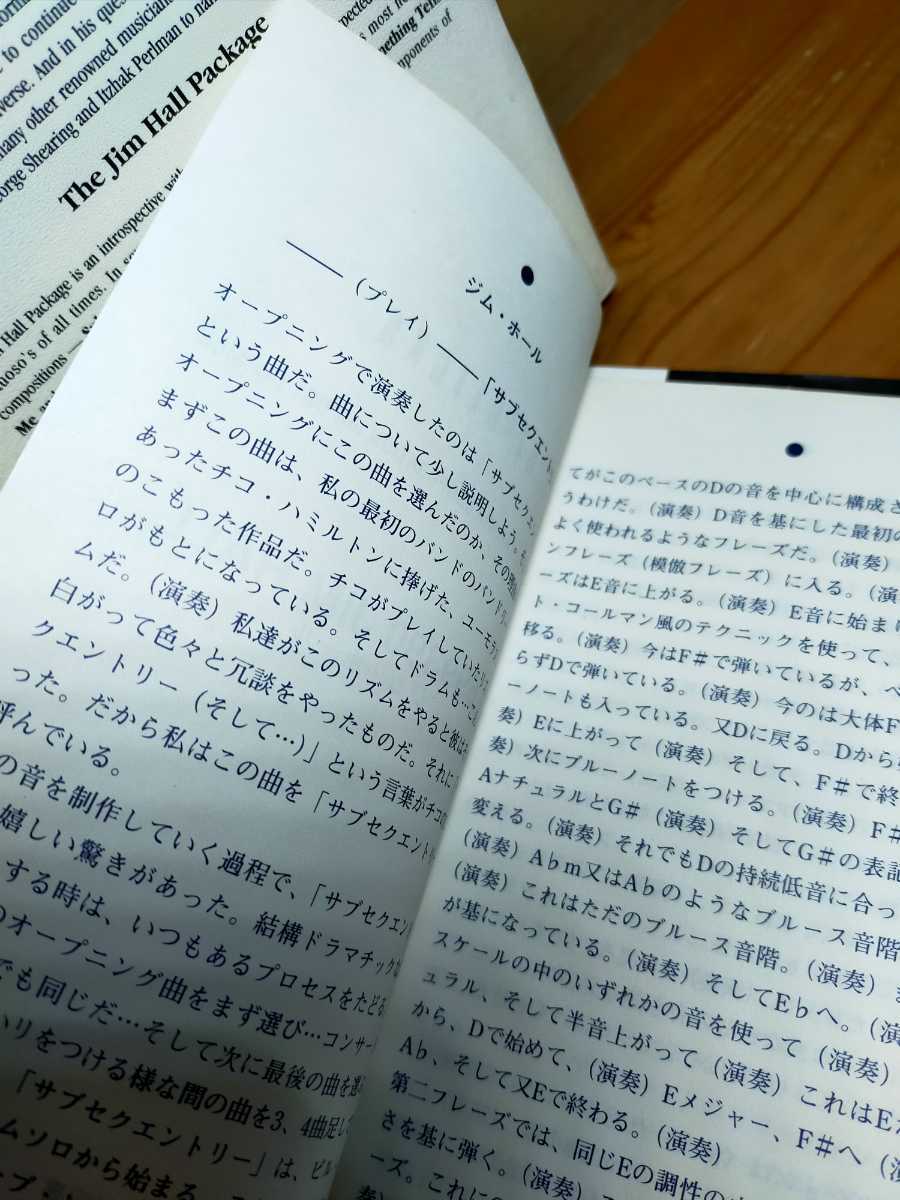 to continue
verse. And in his ques
many other renowned musician
orge Shearing and Itzhak Perlman to nam
pected
s most no
mething Tells
components of
The Jim Hall Package
Hall Package is an introspective with
uoso's of all times. In
compositions
Me
ジム・ホール
——(プレイ)——「サブセクエント
オープニングで演奏したのは「サブセクエン
という曲だ。曲について少し説明しよう。
オープニングにこの曲を選んだのか、その
まずこの曲は、私の最初のバンドのバンドリー
あったチコ・ハミルトンに捧げた、ユーモア
のこもった作品だ。チコがプレイしていた
ロがもとになっている。そしてドラムも…こ
ムだ。(演奏)私達がこのリズムをやると彼は
白がって色々と冗談をやったものだ。それに
クエントリー(そして…)」という言葉がチコの
った。だから私はこの曲を「サブセクエントリー
呼んでいる。
の音を制作していく過程で、「サブセクエン
嬉しい驚きがあった。結構ドラマチック
する時は、いつもあるプロセスをたどる
のオープニング曲をまず選び…コンサー
でも同じだ…そして次に最後の曲を選
ハリをつける様な間の曲を3、4曲足し
「サブセクエントリー」は、ビル
ムソロから始まる。
てがこのベースのDの音を中心に構成さ
うわけだ。(演奏)D音を基にした最初の
よく使われるようなフレーズだ。(演奏)
ンフレーズ(模倣フレーズ)に入る。(演
ーズはE音に上がる。(演奏)E音に始まり
ト・コールマン風のテクニックを使って、
移る。(演奏)今はF♯で弾いているが、ベ
らずDで弾いている。(演奏)今のは大体F
ーノートも入っている。又Dに戻る。Dから
奏)Eに上がって(演奏)そして、F♯で終
奏)次にブルーノートをつける。(演奏)F♯
AナチュラルとG♯(演奏)そしてG♯の表記
変える。(演奏)それでもDの持続低音に合っ
(演奏)A♭m又はA♭のようなブルース音階
(演奏)これはただのブルース音階。(演奏)
が基になっている。(演奏)そしてE♭へ。(演
スケールの中のいずれかの音を使って(演奏)
ュラル、そして半音上がって(演奏)これはE
から、Dで始めて、(演奏)Eメジャー、F♯へ(演
A♭、そして又Eで終わる。(演奏)
第二フレーズでは、同じEの調性の
さを基に弾く。(演奏)
ーズ。これに